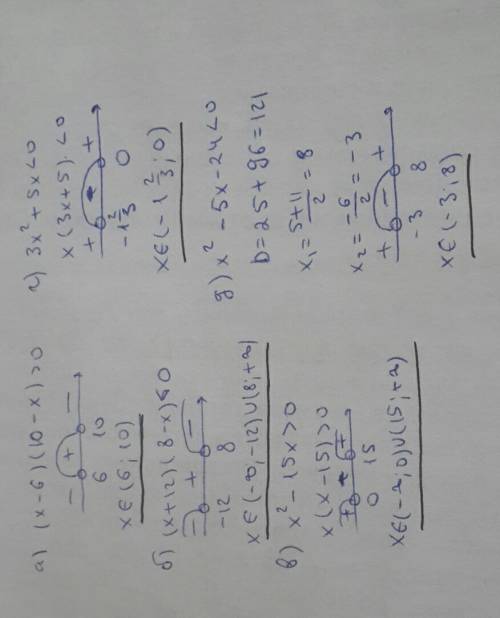 а) (x-6)(10-x)>0
- + -
6 10
x∈(6;10)
б) (x+12)(8-x)<0
- + -
-12 8
x∈(-∞;-12)∪(8;+∞)
в) x²-15x>0
x(x-15)>0
+ - +
0 15
x∈(-∞;0)∪(15;+∞)
г) 3x²+5x<0
x(3x+5)<0
+ - +
-1 2/3 0
x∈(-1 2/3;0)
д) x²-5x-24<0
D=25+96=121
x₁=5+11/2=8
x₂=-6/2=-3
+ - +
-3 8
x∈(-3;8)